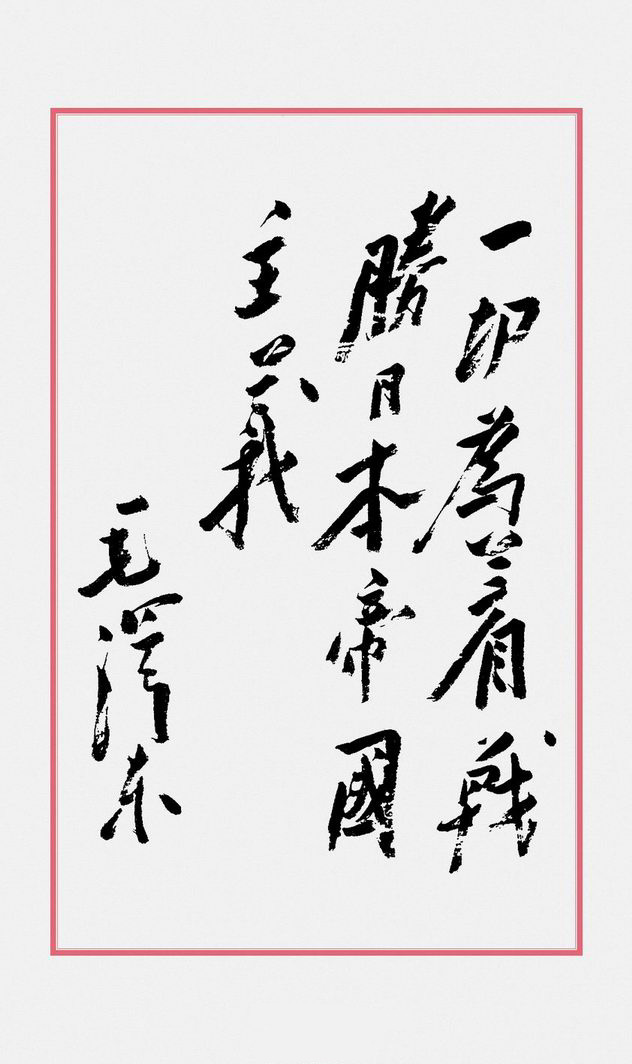 一切為着戰
勝日本帝國
主義
毛澤东